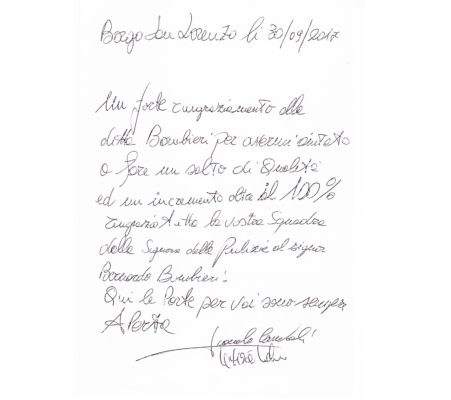 Borgo San Lorenzo li 30/09/2017
Un forte ringraziamento alla
ditta Bombieri per avermi aiutato
a fare un salto di Qualità
ed un incremento oltre il 100%
ringrazio tutta la vostra Squadra
dalla Signora delle Pulizie al signor
Bernardo Bombieri!
Qui le Porte per voi sono sempre
APerte